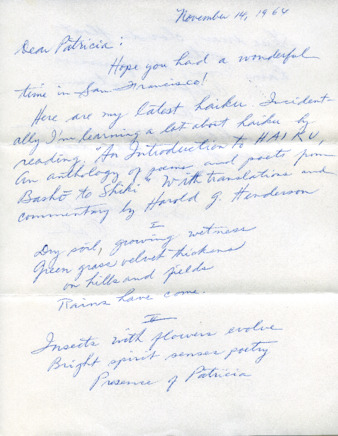 November 14, 1964
Dear Patricia:
Hope you had a wonderful
time in San Francisco!
Here are my latest haiku. Incident-
ally I'm learning a lot about haiku by
reading, "An Introduction to HAIKU,
An anthology of poems and poets from
Bashō to Shiki" With translations and
commentary by Harold G. Henderson
I
Dry soil, growing wetness
Green grass velvet thickens
on hills and fields
Rains have come.
II
Insects with flowers evolve
Bright spirit senses poetry
Presence of Patricia